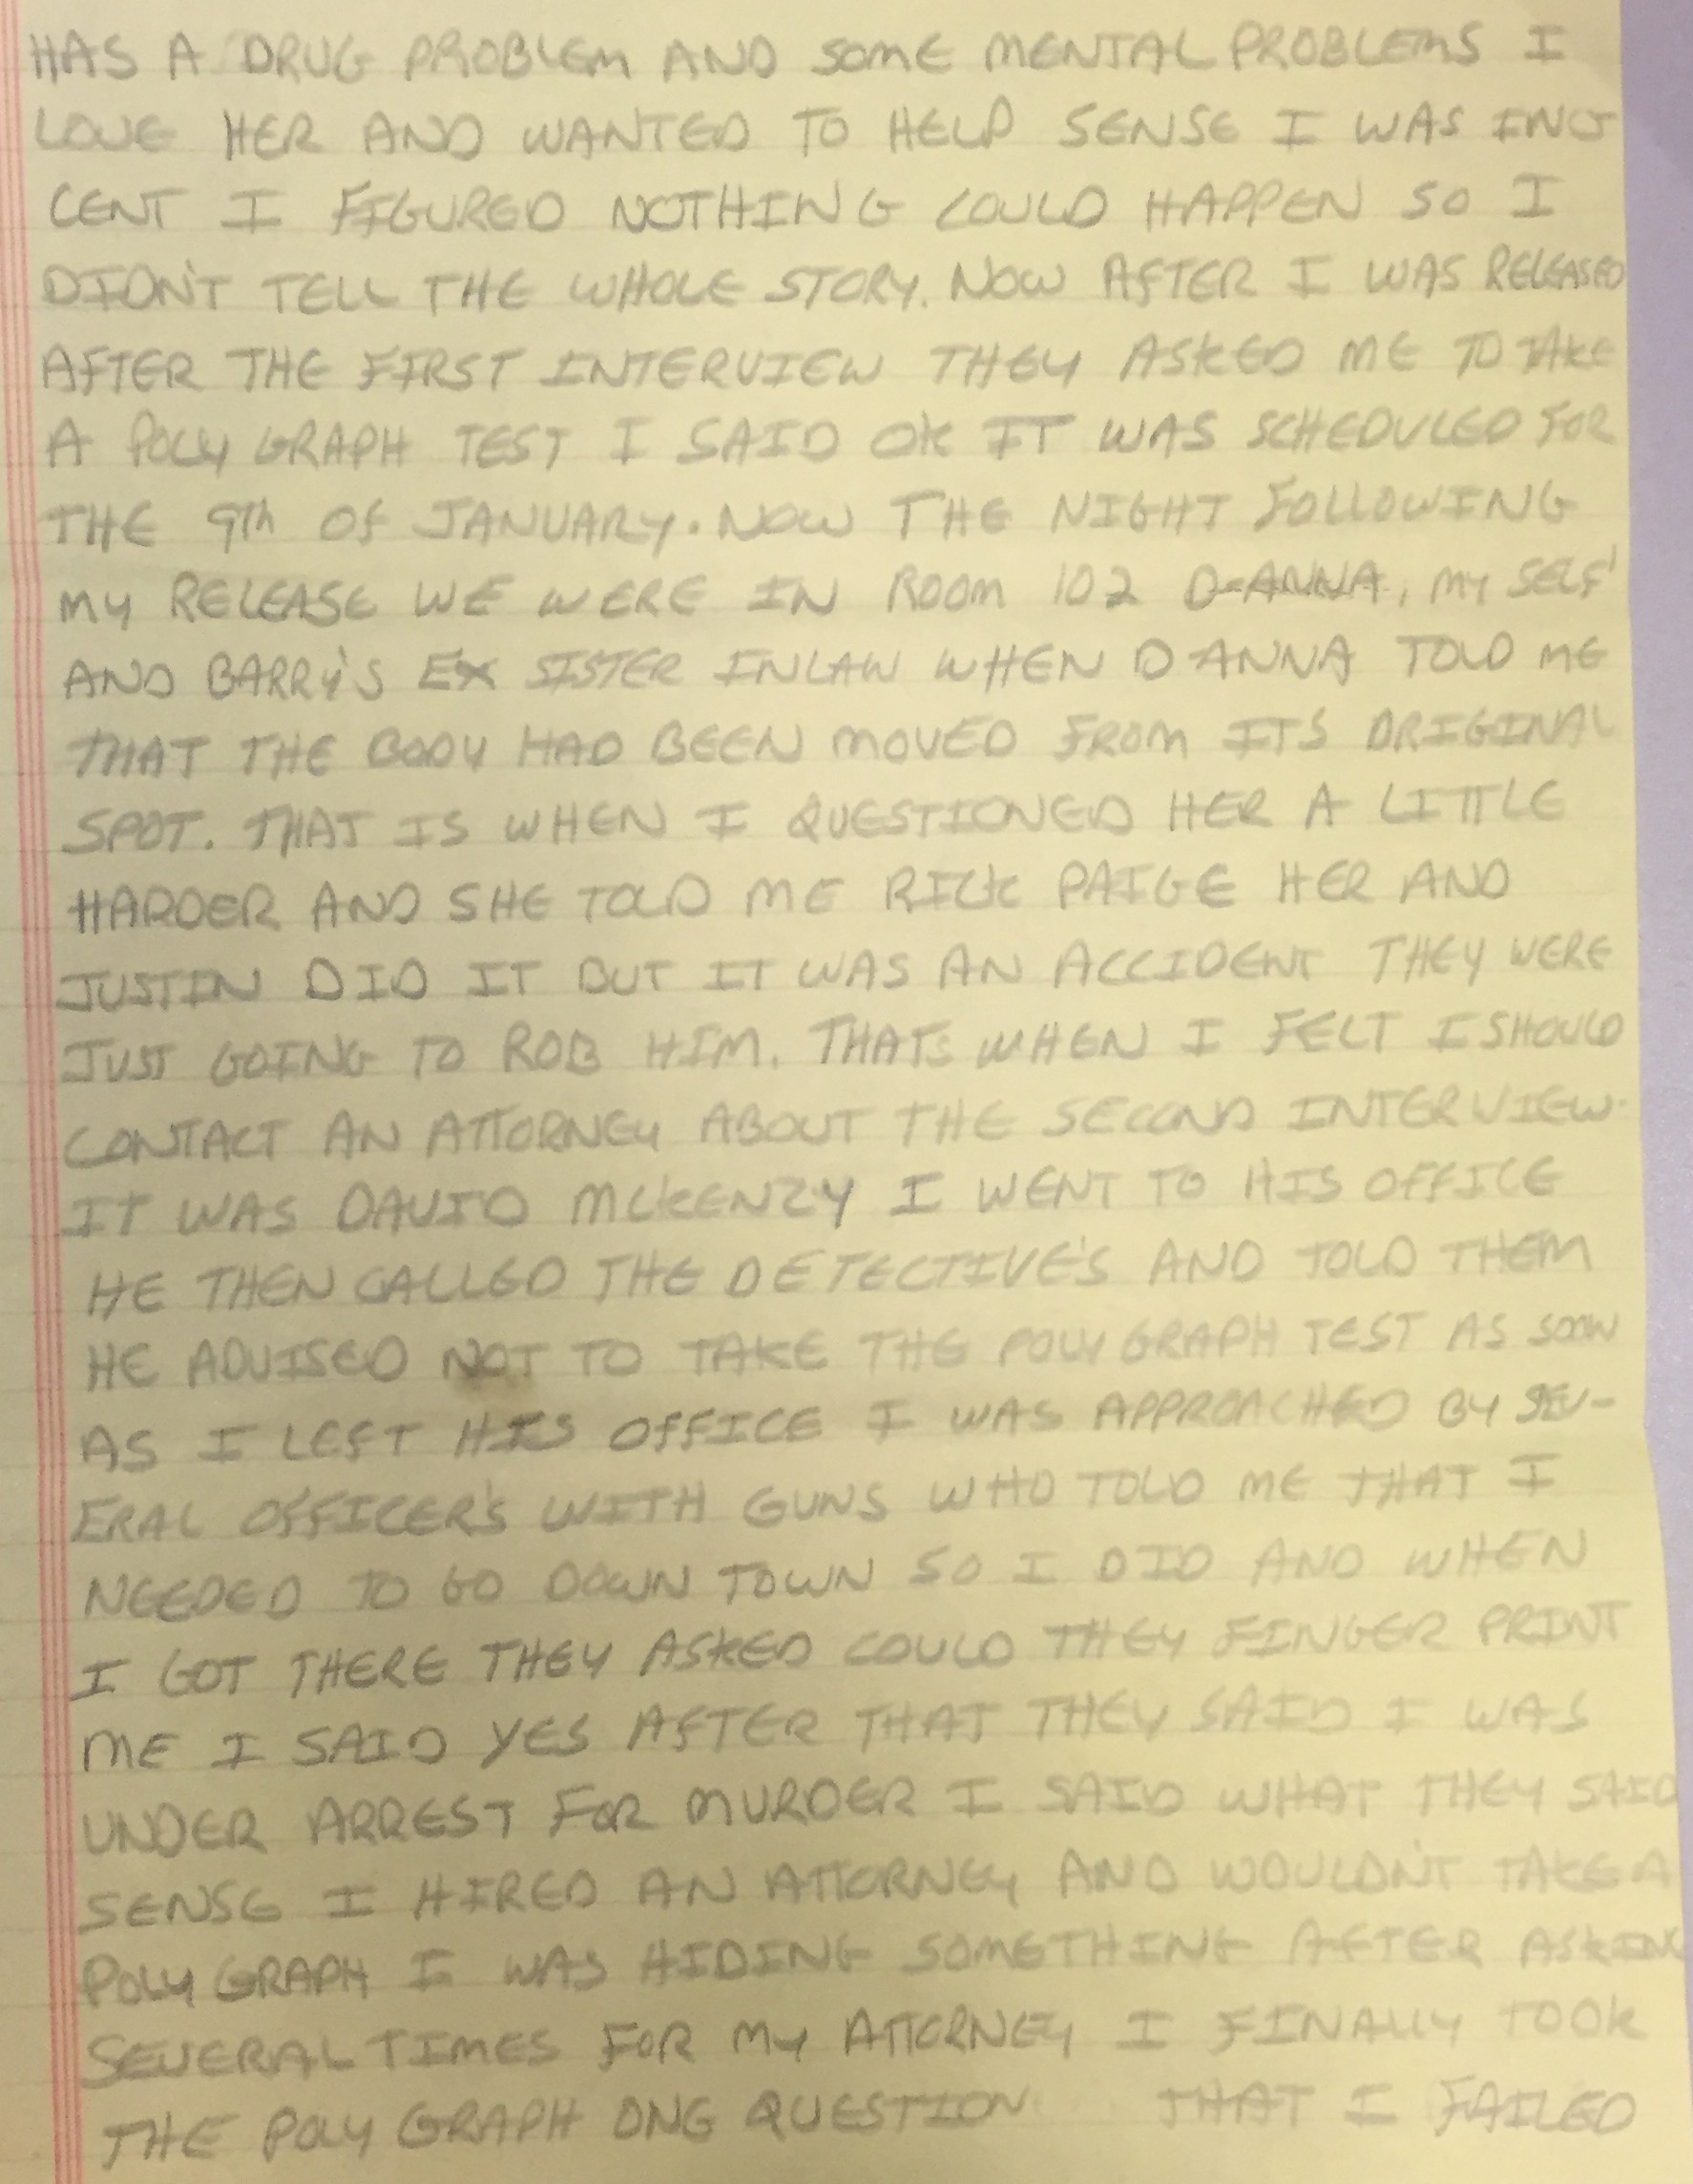 HAS A DRUG PROBLEM AND SOME MENTAL PROBLEMS I
LOVE HER AND WANTED TO HELP SENSE I WAS INO
CENT I FIGURED NOTHING COULD HAPPEN SO I
DIDN'T TELL THE WHOLE STORY. NOW AFTER I WAS RELEASED
AFTER THE FIRST INTERVIEW THEY ASKED ME TO TAKE
A POLY GRAPH TEST I SAID OK IT WAS SCHEDULED FOR
THE 9Th OF JANUARY. NOW THE NIGHT FOLLOWING
MY RELEASE WE WERE IN ROOM 102 D-ANNA, MY SELF
AND BARRY'S EX SISTER INLAW WHEN D ANNA TOLD ME
THAT THE BODY HAD BEEN MOVED FROM ITS ORIGINAL
SPOT. THAT IS WHEN I QUESTIONED HER A LITTLE
HARDER AND SHE TOLD ME RICK PAIGE HER AND
JUSTIN DID IT BUT IT WAS AN ACCIDENT THEY WERE
JUST GOING TO ROB HIM. THATS WHEN I FELT I SHOULD
CONTACT AN ATTORNEY ABOUT THE SECOND INTERVIEW.
IT WAS DAVID MCKENZY I WENT TO HIS OFFICE
HE THEN CALLED THE DETECTIVE'S AND TOLD THEM
HE ADVISED NOT TO TAKE THE POLY GRAPH TEST AS SOON
AS I LEFT HIS OFFICE I WAS APPROACHED BY SEV-
ERAL OFFICER'S WITH GUNS WHO TOLD ME THAT I
NEEDED TO GO DOWN TOWN SO I DID AND WHEN
I GOT THERE THEY ASKED COULD THEY FINGER PRINT
ME I SAID YES AFTER THAT THEY SAID I WAS
UNDER ARREST FOR MURDER I SAID WHAT THEY SAID
SENSE I HIRED AN ATTORNEY AND WOULDN'T TAKE A
POLY GRAPH I WAS HIDING SOMETHING AFTER ASKING
SEVERAL TIMES FOR MY ATTORNEY I FINALLY TOOK
THE POLY GRAPH ONE QUESTION THAT I FAILED